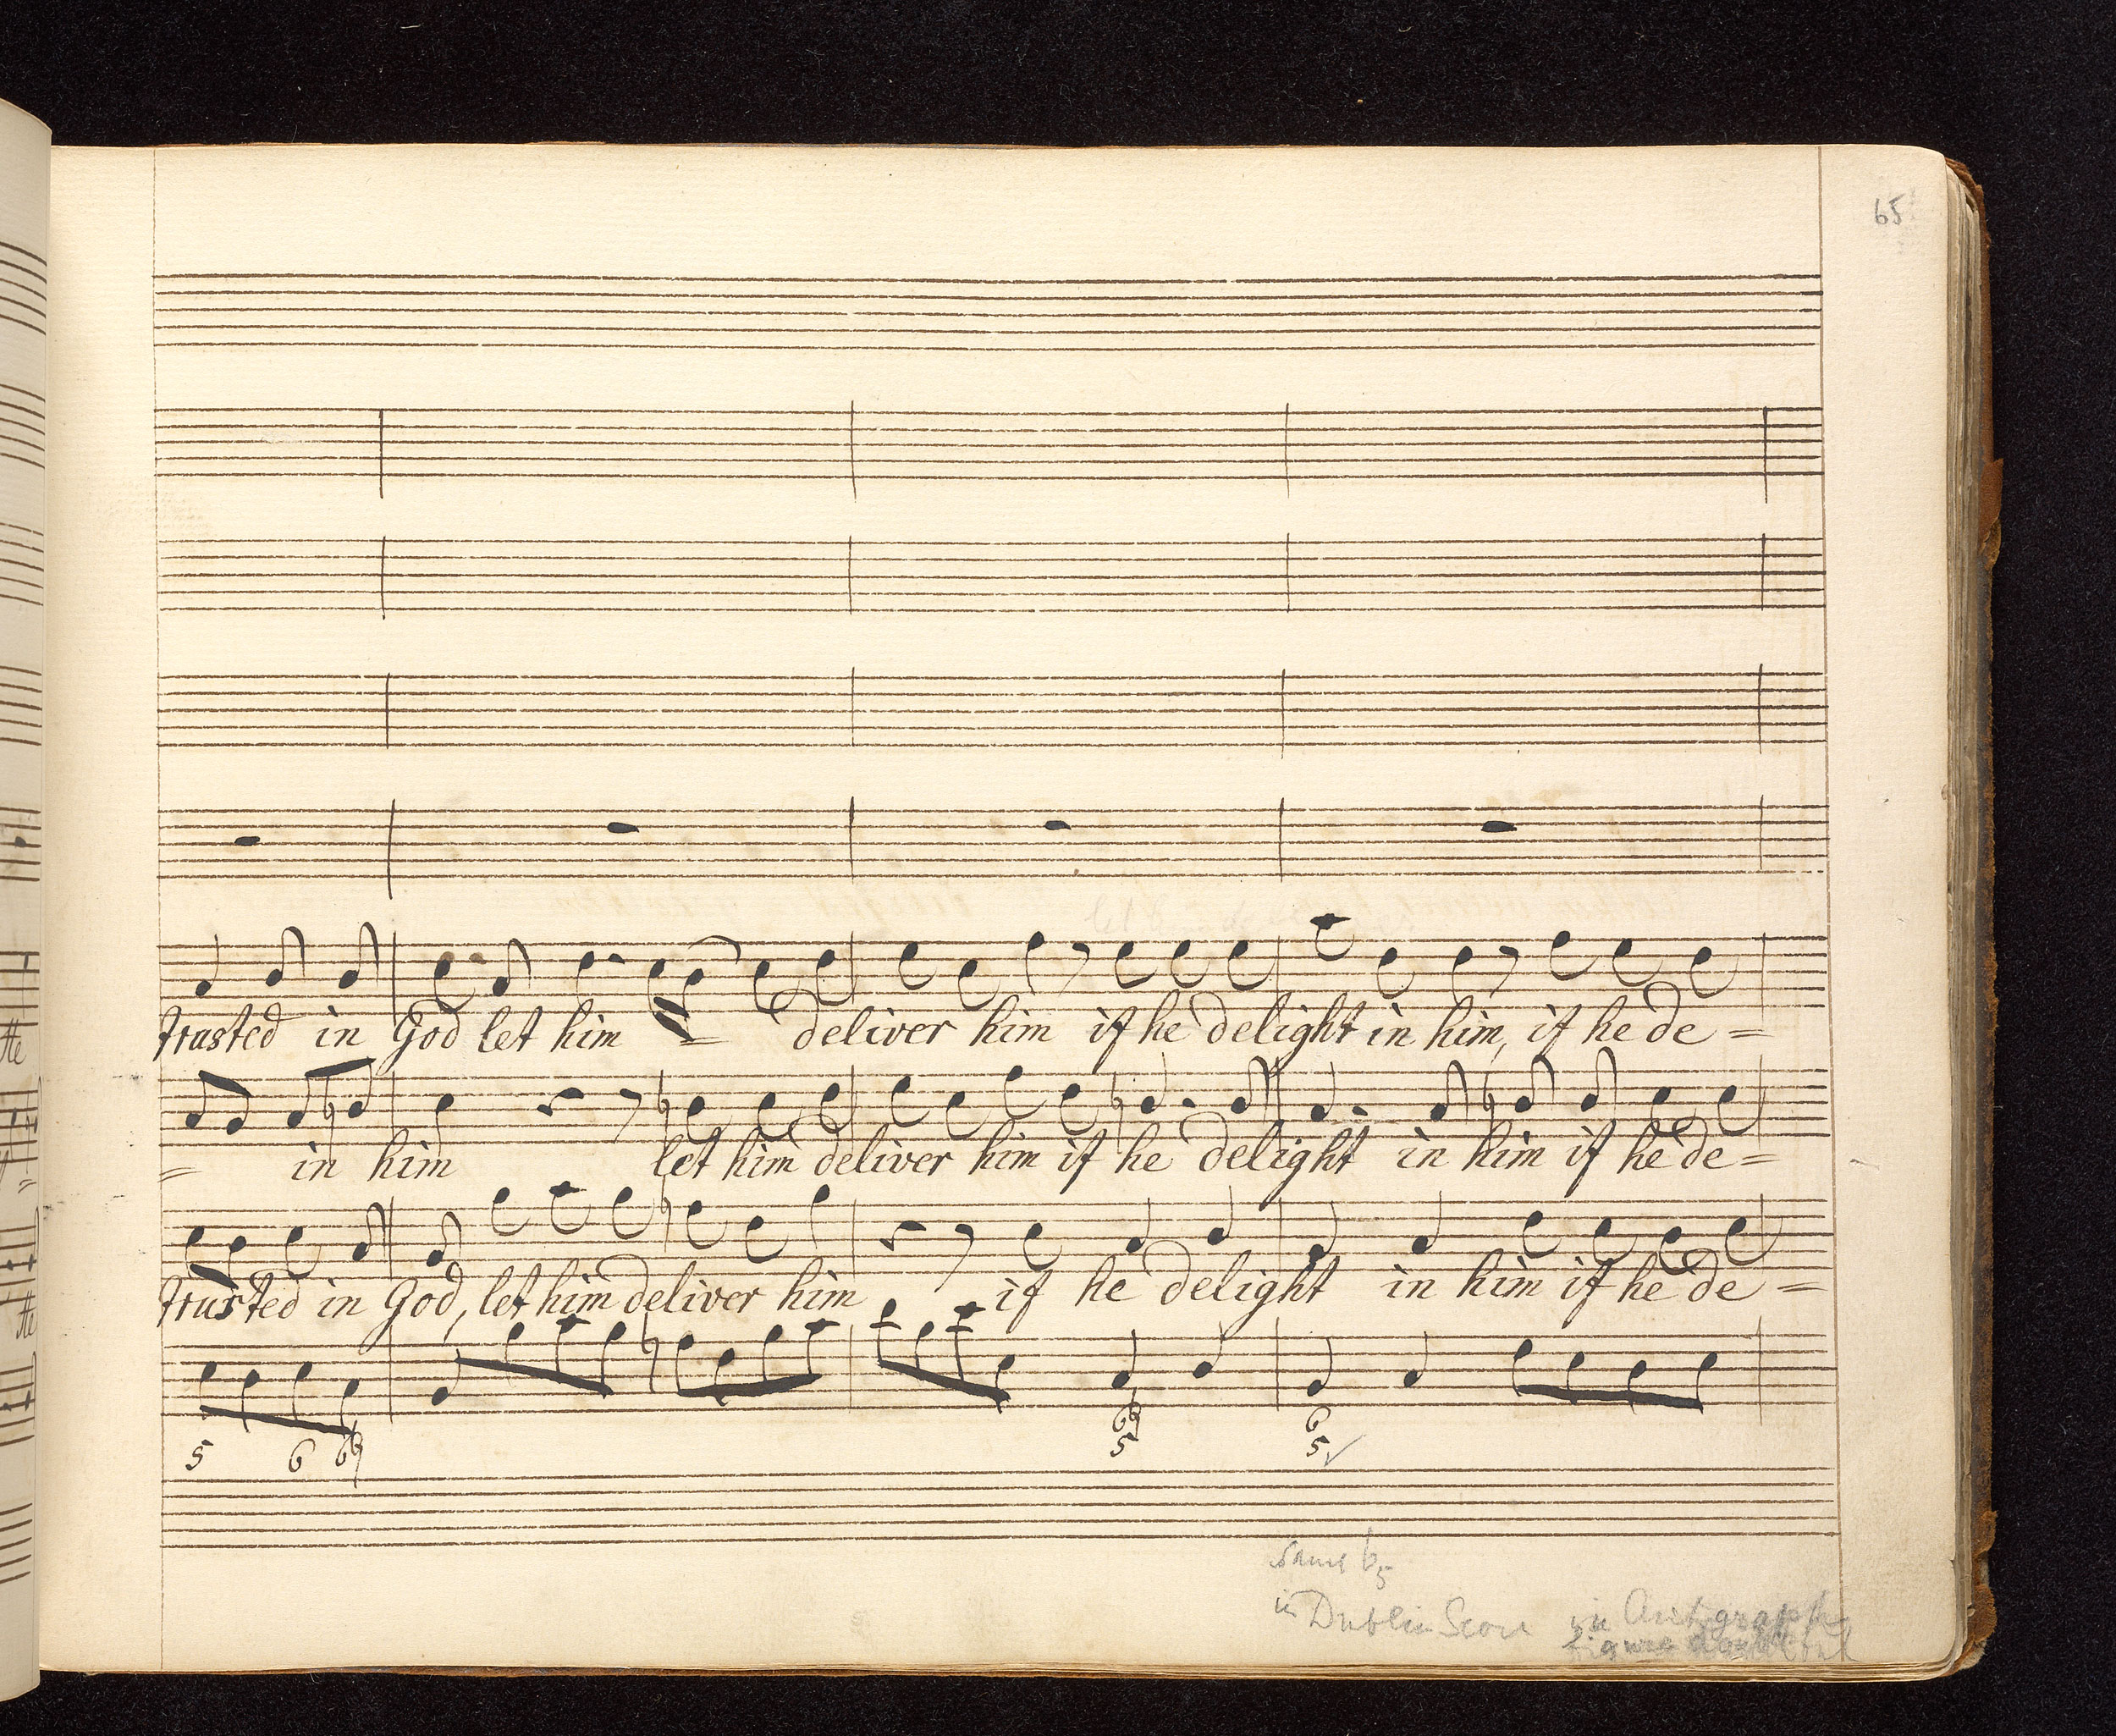 65
trusted in God let him = deliver him if he delight in him, if he de =
= in him let him deliver him if he delight in him if he de =
trusted in God, let him deliver him if he delight in him if he de =
5 6 6♮ 6♮ 6
5 5
same 6 5
in Dublin Score in Autograph
figure doubtful